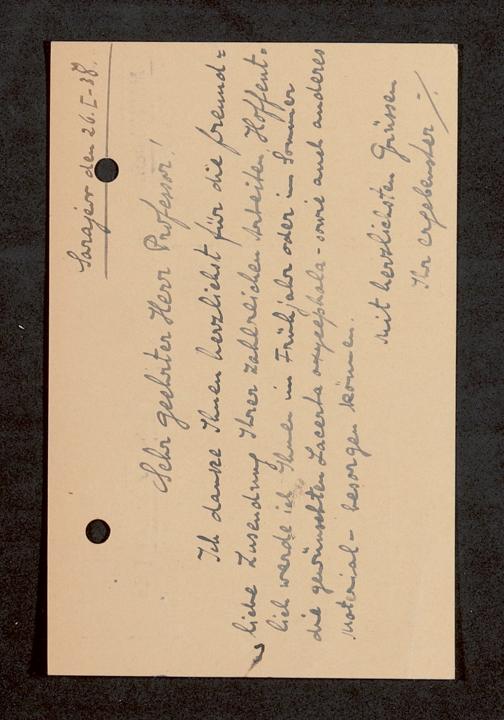 Sarajevo den 26.I-38.
Sehr geehrter Herr Professor!
Ich danke Ihnen herzlichst für die freund-
liche Zusendung Ihrer zahlreichen Arbeiten. Hoffent-
lich werde ich Ihnen im Frühjahr oder im Sommer
die gewünschten Lacerta oxycephala - sowie auch anderes
Material - besorgen können.
Mit herzlichsten Grüssen
Ihr ergebenster ./.